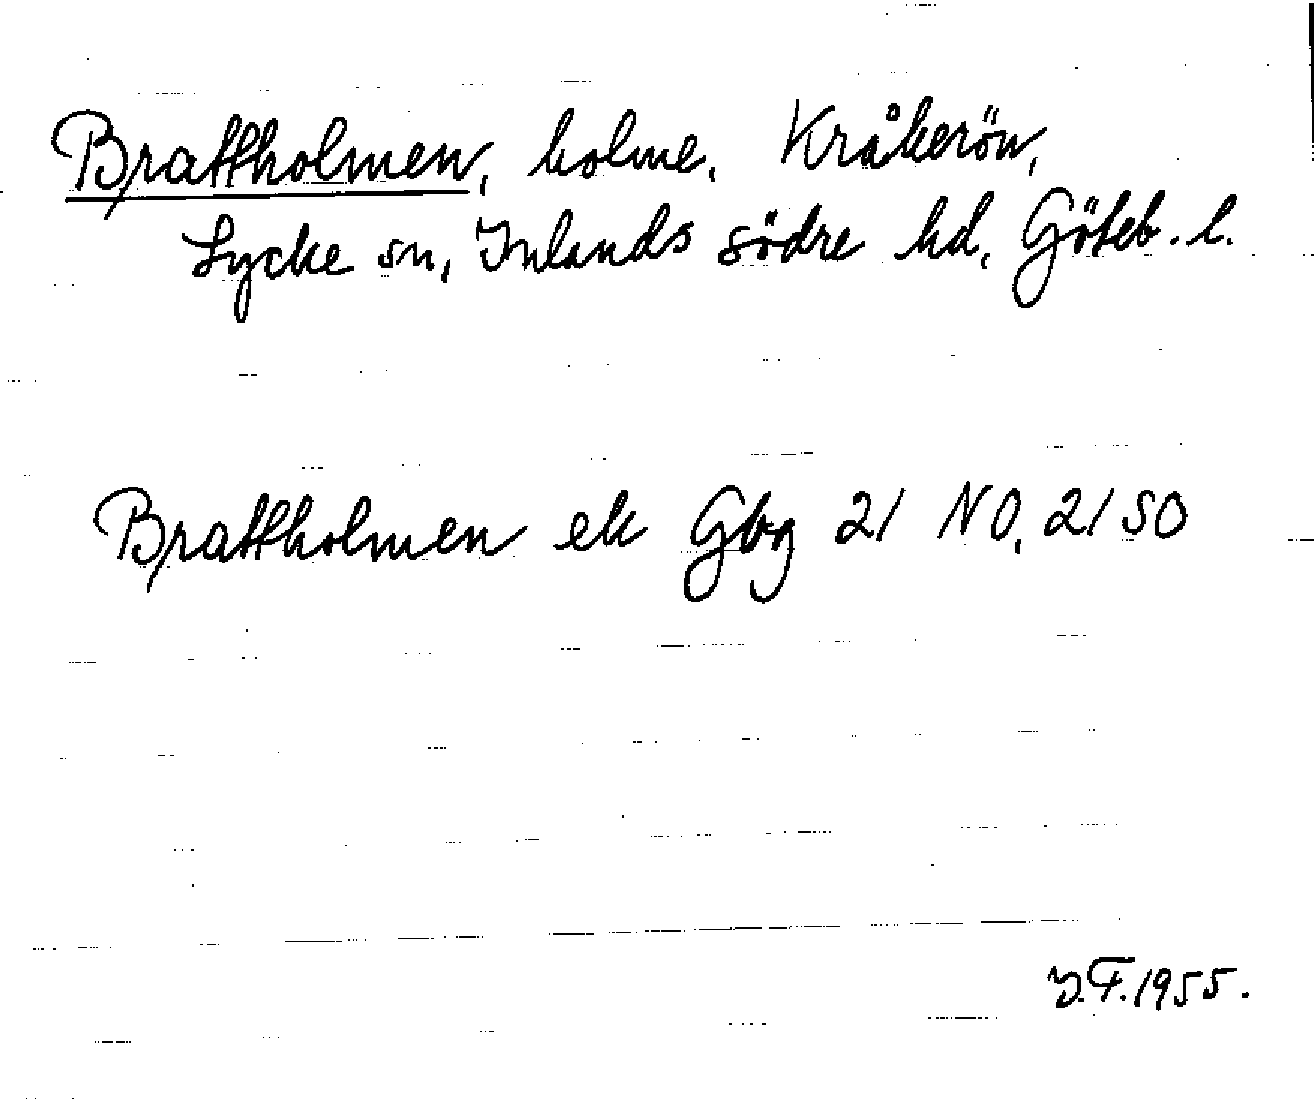 Brattholmen, holme, Kråkerön,
Lycke sn, Inlands södre hd, Göteb. l.
Brattholmen ek Gbg 21 NO, 21 SO
J.F. 1955.